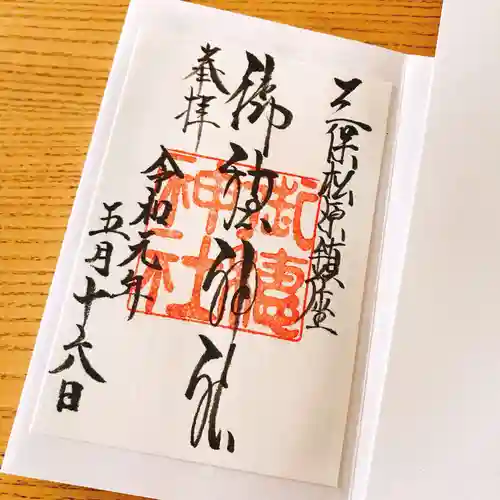 三保松原鎮座
奉拝
御穂神社
令和元年
五月十六日
御穂
神社